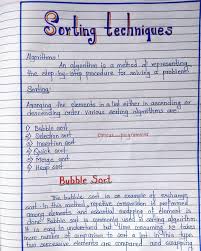 Sorting techniques
Algorithms:
An algorithm is a method of representing
the step-by-step procedure for solving a problem.
Sorting:
Arranging the elements in a list either in ascending or
descending order. various sorting algorithms are
① Bubble sort
② Selection sort
③ Insertion sort
④ Quick sort
⑤ Merge sort
⑥ Heap sort
Bubble Sort
The bubble sort is an example of exchange
sort. In this method, repetitive comparison is performed
among elements and essential swapping of elements is
done. Bubble sort is commonly used in sorting algorithms.
It is easy to understand but time consuming. It takes
more number of comparisons to sort a list. In this type,
two successive elements are compared and swapping